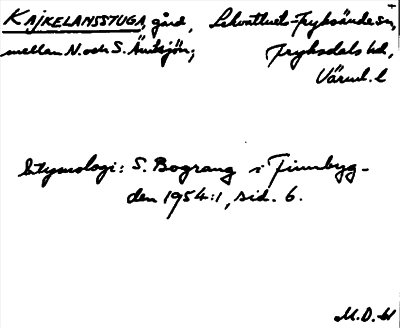 KAJKELANSSTUGA, gård, Lekvattnet-Fryksände sn,
mellan N. och S. Ämtsjön; Fryksdals hd,
Värml. l
Etymologi: S. Bograng i Finnbyg-
den 1954:1, sid. 6.
M.O.H